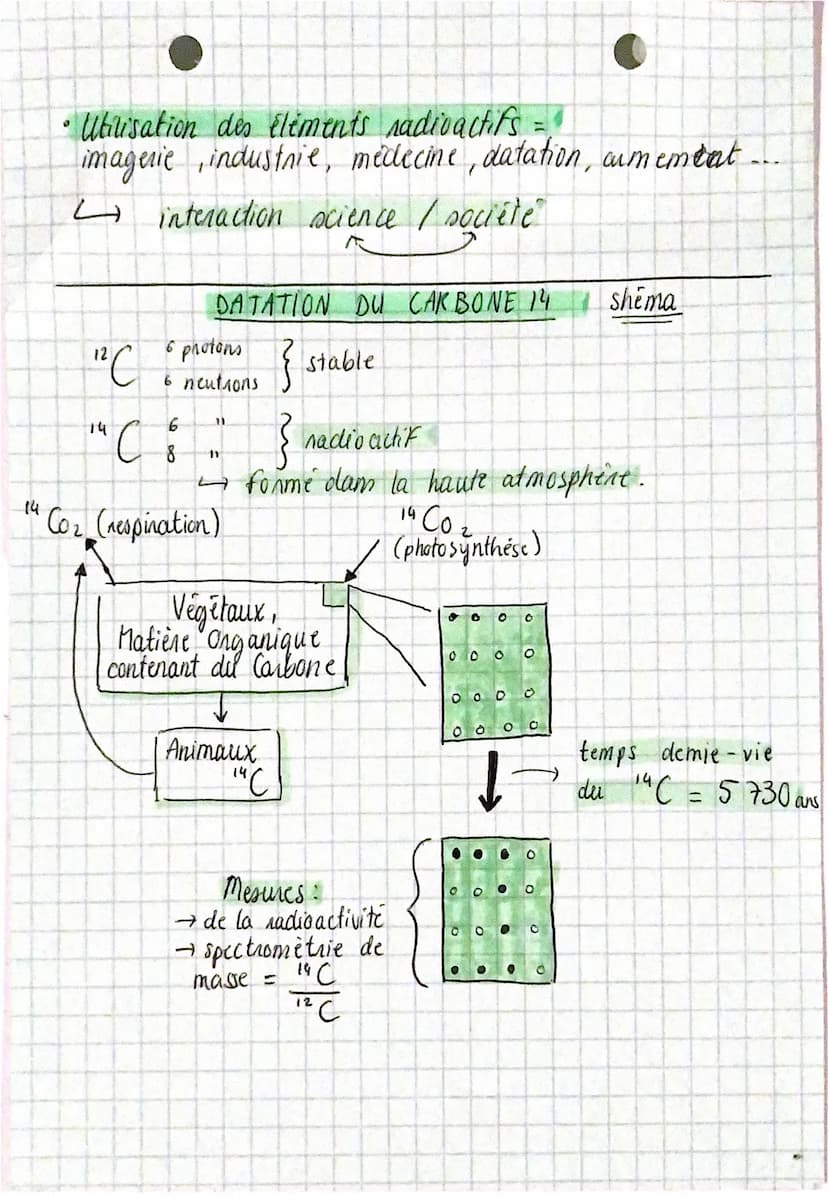 • Utilisation des éléments radioactifs =
imagerie, industrie, médecine, datation, armement ...
↳ interaction science / société
DATATION DU CARBONE 14 shéma
¹²C 6 protons
6 neutrons } stable
¹⁴C 6 "
8 " } radioactif
↳ formé dans la haute atmosphère.
¹⁴CO₂ (respiration)
¹⁴CO₂
(photosynthèse)
Végétaux,
Matière Organique
contenant du Carbone
Animaux
¹⁴C
temps demie-vie
du ¹⁴C = 5 730 ans
Mesures :
→ de la radioactivité
→ spectromètrie de
masse = ¹⁴C
¹²C